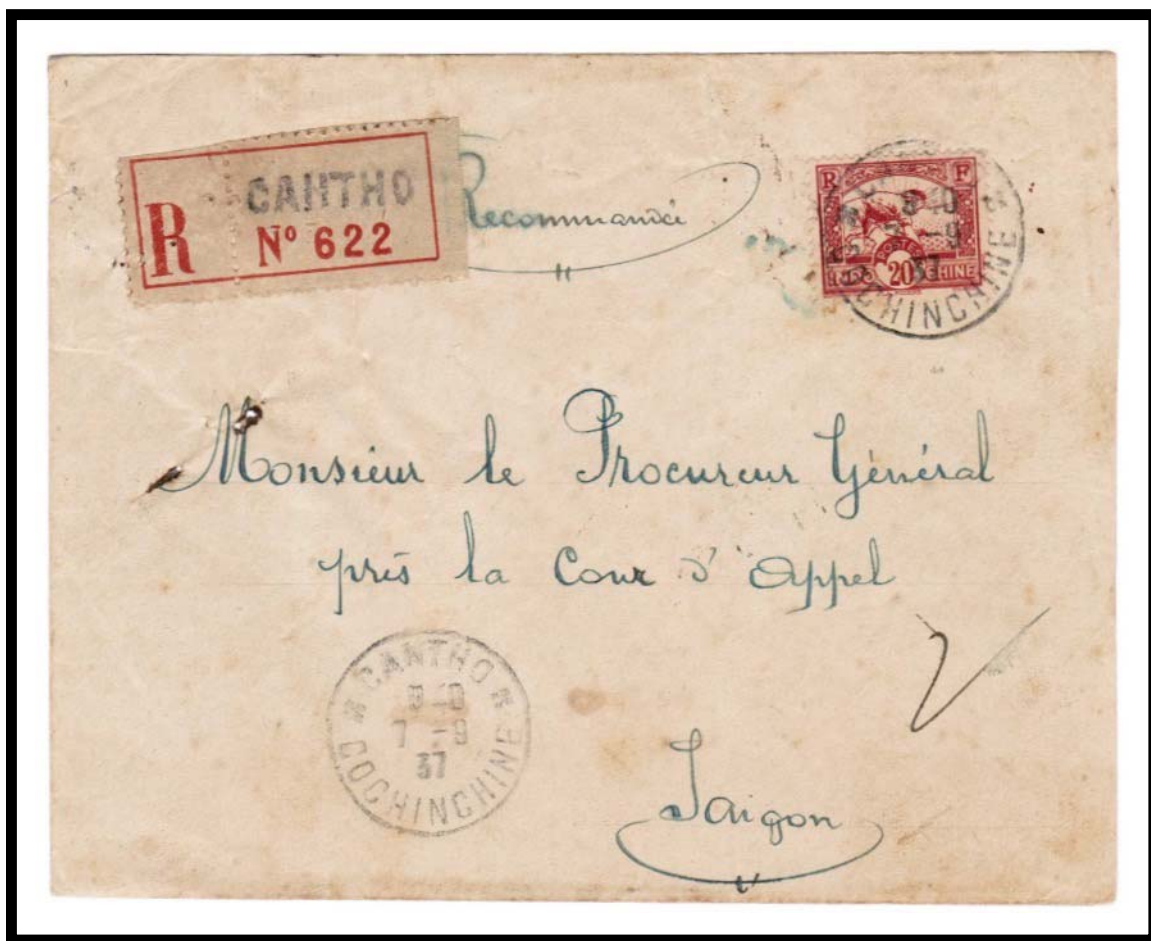 R CANTHO
Nº 622
Recommandé
R F
POSTES
20
COCHINCHINE
9-10
7 -9
37
Monsieur le Procureur Général
près la Cour d'Appel
CANTHO
7 -9
37
COCHINCHINE
Saigon